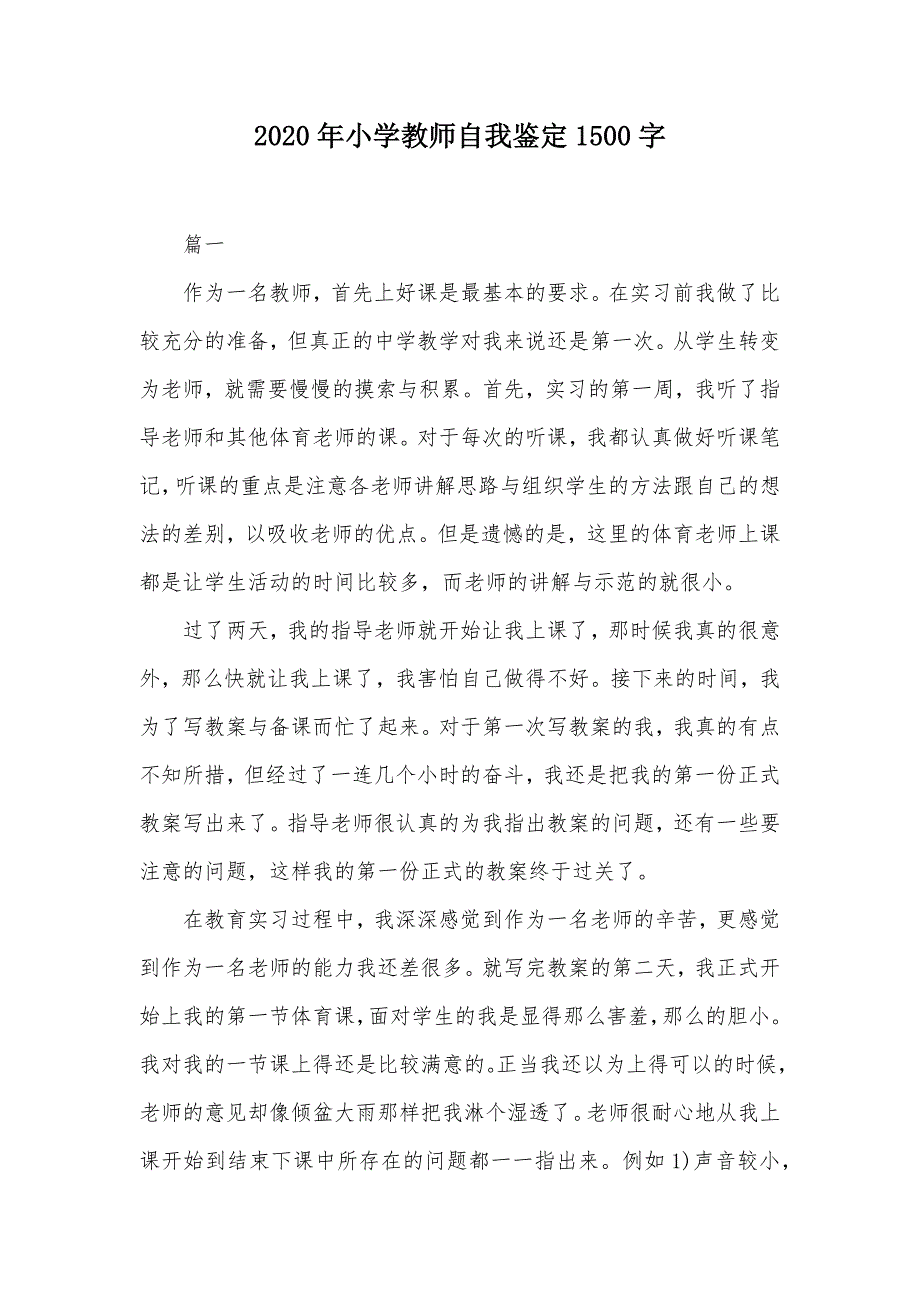 2020 年小学教师自我鉴定 1500 字
篇一
作为一名教师，首先上好课是最基本的要求。在实习前我做了比
较充分的准备，但真正的中学教学对我来说还是第一次。从学生转变
为老师，就需要慢慢的摸索与积累。首先，实习的第一周，我听了指
导老师和其他体育老师的课。对于每次的听课，我都认真做好听课笔
记，听课的重点是注意各老师讲解思路与组织学生的方法跟自己的想
法的差别，以吸收老师的优点。但是遗憾的是，这里的体育老师上课
都是让学生活动的时间比较多，而老师的讲解与示范的就很小。
过了两天，我的指导老师就开始让我上课了，那时候我真的很意
外，那么快就让我上课了，我害怕自己做得不好。接下来的时间，我
为了写教案与备课而忙了起来。对于第一次写教案的我，我真的有点
不知所措，但经过了一连几个小时的奋斗，我还是把我的第一份正式
教案写出来了。指导老师很认真的为我指出教案的问题，还有一些要
注意的问题，这样我的第一份正式的教案终于过关了。
在教育实习过程中，我深深感觉到作为一名老师的辛苦，更感觉
到作为一名老师的能力我还差很多。就写完教案的第二天，我正式开
始上我的第一节体育课，面对学生的我是显得那么害羞，那么的胆小。
我对我的一节课上得还是比较满意的。正当我还以为上得可以的时候，
老师的意见却像倾盆大雨那样把我淋个湿透了。老师很耐心地从我上
课开始到结束下课中所存在的问题都一一指出来。例如 1)声音较小，